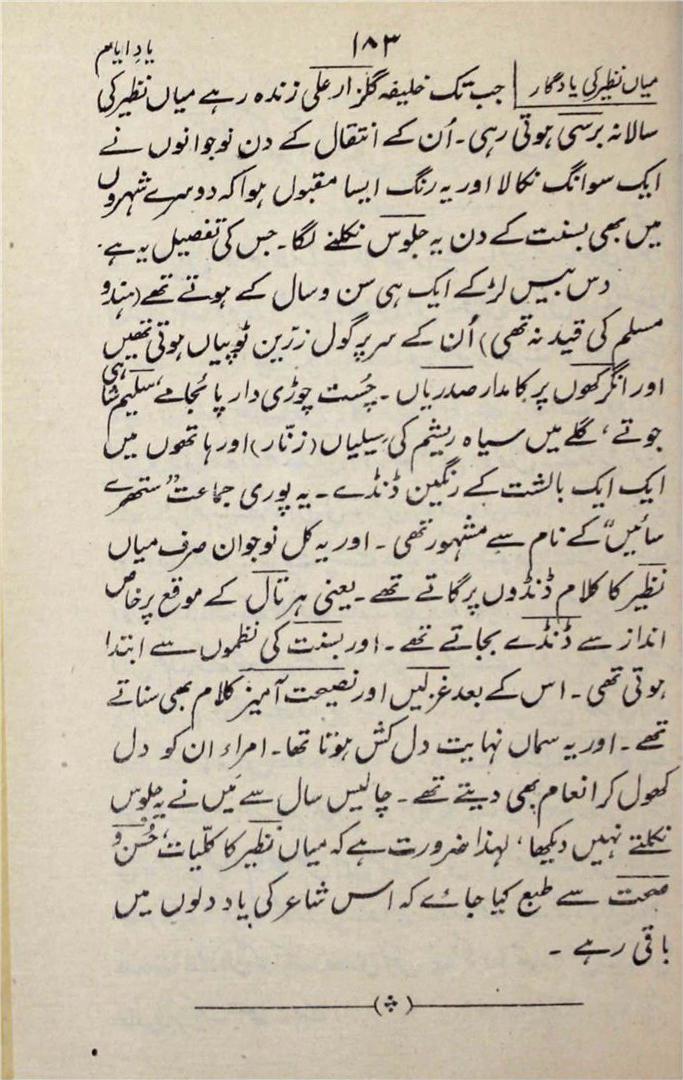 ۱۸۳
یادِ ایام
میاں نظیر کی یادگار | جب تک خلیفہ گلزار علی زندہ رہے میاں نظیر کی
سالانہ برسی ہوتی رہی۔ اُن کے انتقال کے دن نوجوانوں نے
ایک سوانگ نکالا اور یہ رنگ ایسا مقبول ہوا کہ دوسرے شہروں
میں بھی بسنت کے دن یہ جلوس نکلنے لگا۔ جس کی تفصیل یہ ہے۔
دس بیس لڑکے ایک ہی سن و سال کے ہوتے تھے (ہندو
مسلم کی قید نہ تھی) اُن کے سر پر گول زرّین ٹوپیاں ہوتی تھیں
اور انگرکھوں پر کامدار صدریاں۔ چُست چوڑی دار پائجامے، سلیم شاہی
جوتے، گلے میں سیاہ ریشم کی سیلیاں (زنّار) اور ہاتھوں میں
ایک ایک بالشت کے رنگین ڈنڈے۔ یہ پوری جماعت "ستھرے
سائیں" کے نام سے مشہور تھی۔ اور یہ کل نوجوان صرف میاں
نظیر کا کلام ڈنڈوں پر گاتے تھے۔ یعنی ہر تال کے موقع پر خاص
انداز سے ڈنڈے بجاتے تھے۔ اور بسنت کی نظموں سے ابتدا
ہوتی تھی۔ اس کے بعد غزلیں اور نصیحت آمیز کلام بھی سناتے
تھے۔ اور یہ سماں نہایت دل کش ہوتا تھا۔ امراء ان کو دل
کھول کر انعام بھی دیتے تھے۔ چالیس سال سے مَیں نے یہ جلوس
نکلتے نہیں دیکھا، لہذا ضرورت ہے کہ میاں نظیر کا کلّیات، حُسن و
صحت سے طبع کیا جائے کہ اس شاعر کی یاد دلوں میں
باقی رہے۔